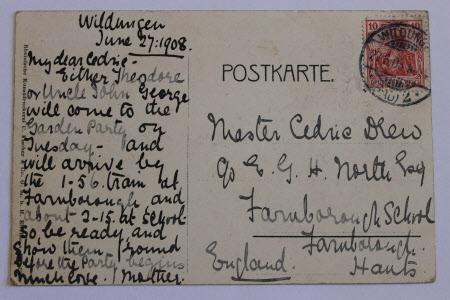 Wildungen
June 27: 1908.
My dear Cedric -
Either Theodore
or Uncle John George
will come to the
Garden Party on
Tuesday - and
will arrive by
the 1-56. train at
Farnborough and
about 2-15. at School
So, be ready, and
show them round
before the Party begins
Much love. Mother.
POSTKARTE.
Master Cedric Drew
c/o E. G. H. North Esq
Farnborough School
Farnborough.
England. Hants
10 10
WILDUNG